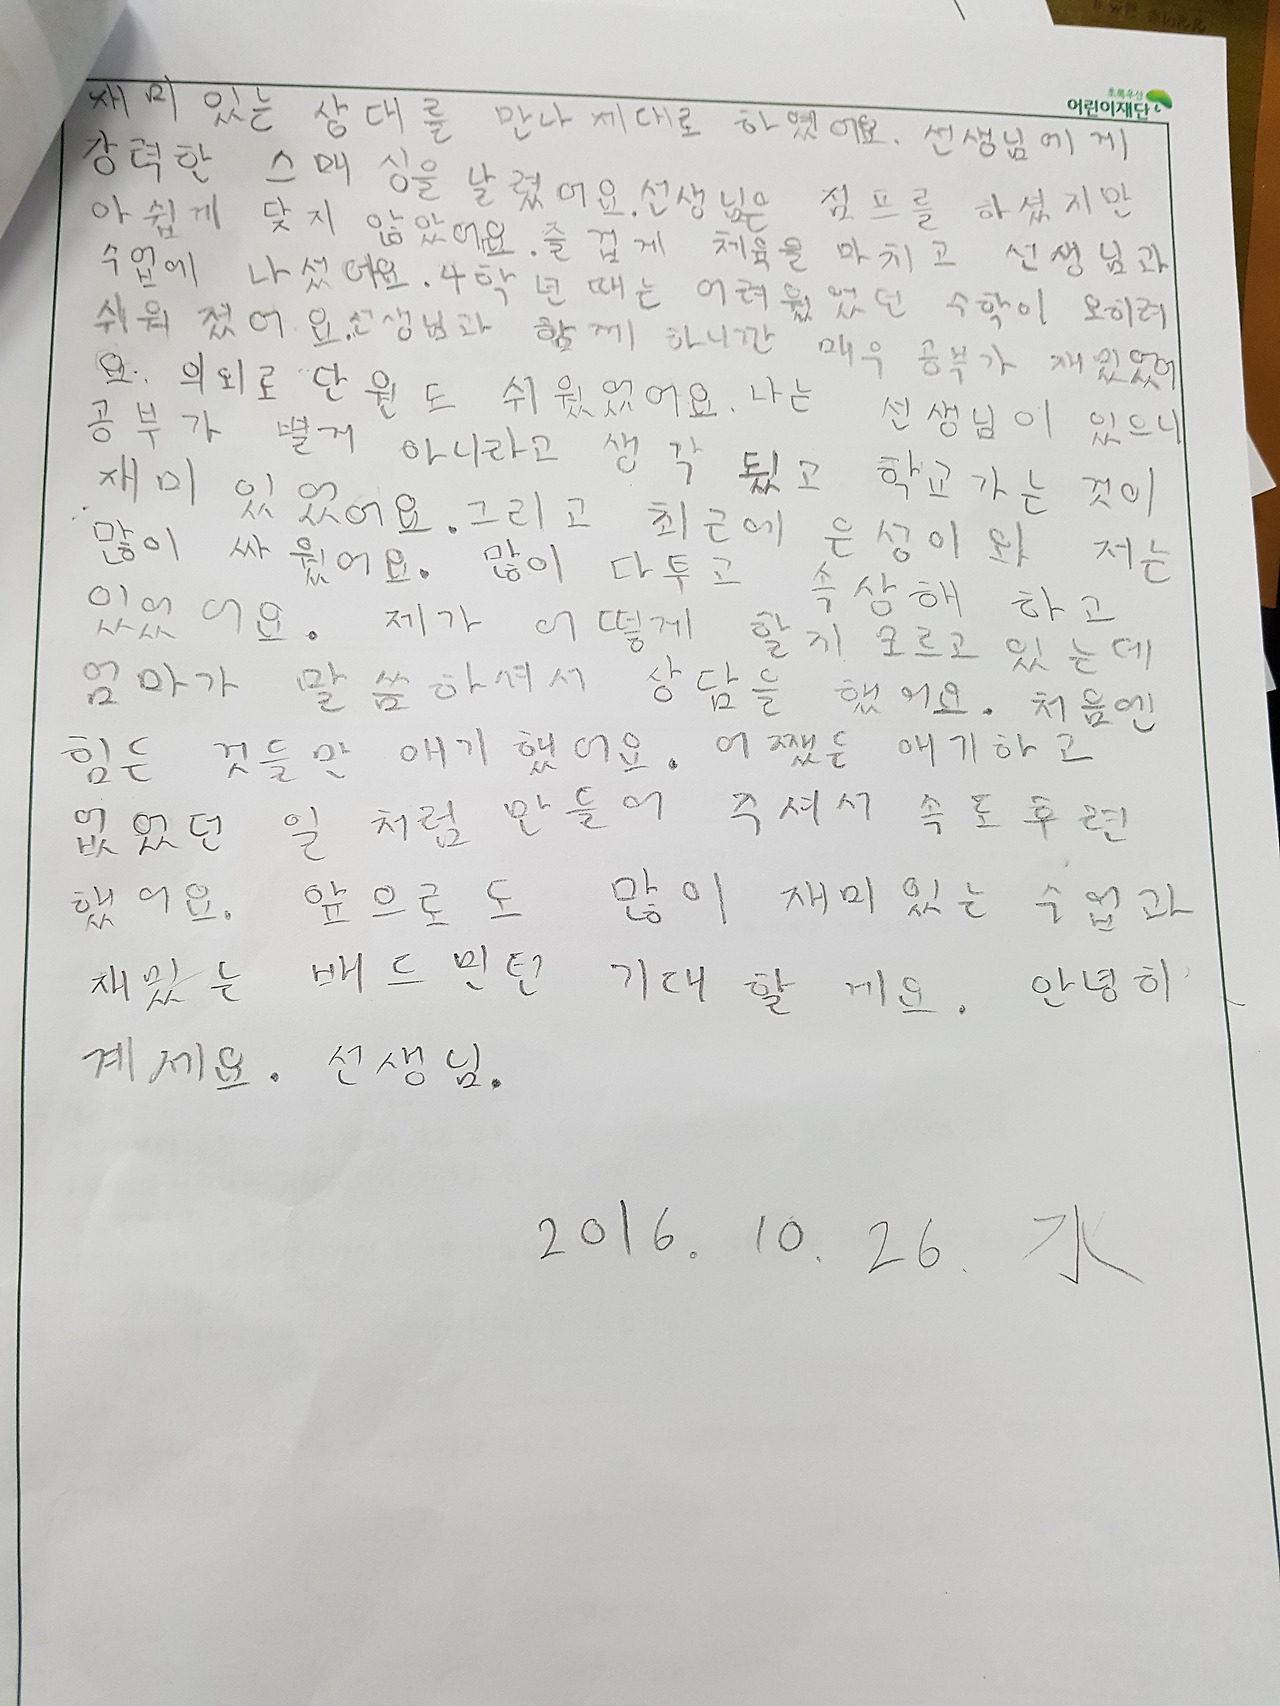 초록우산
어린이재단
재미있는 상대를 만나 제대로 하였어요. 선생님에게
강력한 스매싱을 날렸어요. 선생님은 점프를 하셨지만
아쉽게 닿지 않았어요. 즐겁게 체육을 마치고 선생님과
수업에 나섰어요. 4학년 때는 어려웠었던 수학이 오히려
쉬워졌어요. 선생님과 함께 하니깐 매우 공부가 재밌었어
요. 의외로 단원도 쉬웠었어요. 나는 선생님이 있으니
공부가 별거 아니라고 생각됬고 학교가는 것이
재미있었어요. 그리고 최근에 은성이와 저는
많이 싸웠어요. 많이 다투고 속상해 하고
있었어요. 제가 어떻게 할지 모르고 있는데
엄마가 말씀하셔서 상담을 했어요. 처음엔
힘든 것들만 얘기했어요. 어쨌든 얘기하고
없었던 일처럼 만들어 주셔서 속도 후련
했어요. 앞으로도 많이 재미있는 수업과
재밌는 배드민턴 기대할게요. 안녕히
계세요. 선생님.
2016. 10. 26. 水